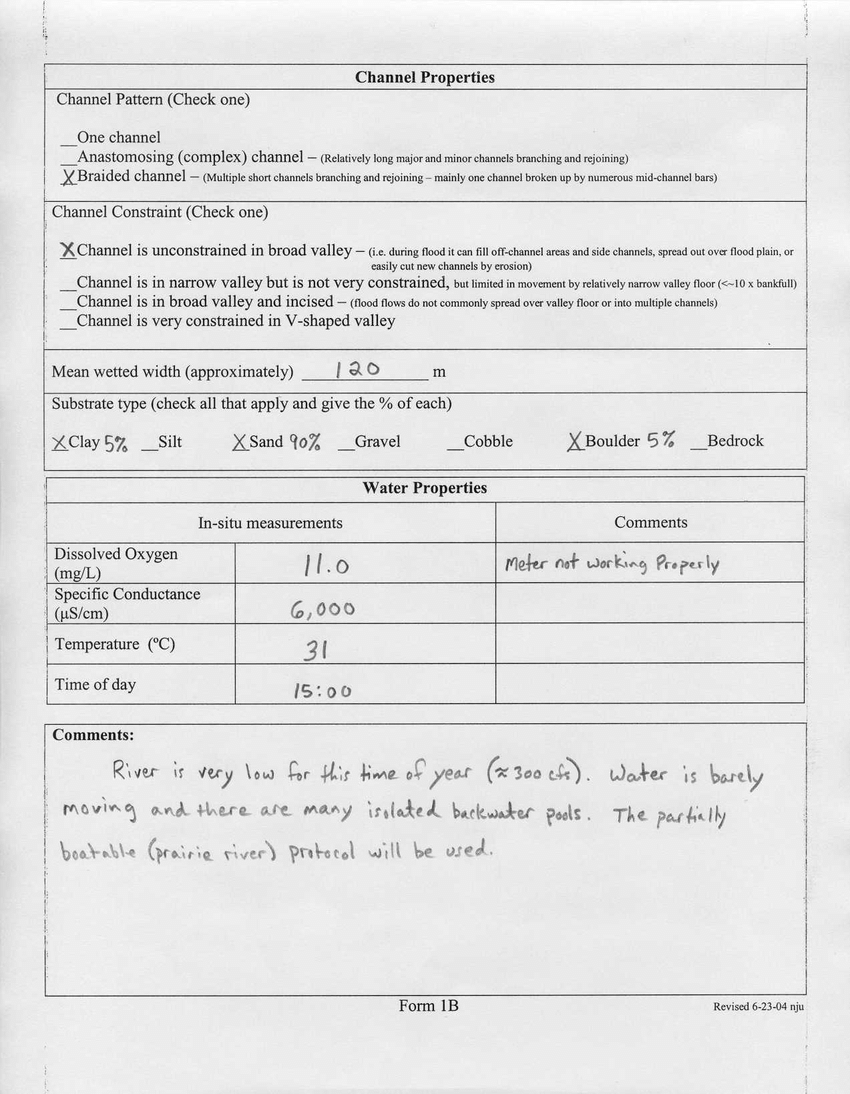 Channel Properties
Channel Pattern (Check one)
__One channel
__Anastomosing (complex) channel – (Relatively long major and minor channels branching and rejoining)
X Braided channel – (Multiple short channels branching and rejoining – mainly one channel broken up by numerous mid-channel bars)
Channel Constraint (Check one)
X Channel is unconstrained in broad valley – (i.e. during flood it can fill off-channel areas and side channels, spread out over flood plain, or
easily cut new channels by erosion)
__Channel is in narrow valley but is not very constrained, but limited in movement by relatively narrow valley floor (<~10 x bankfull)
__Channel is in broad valley and incised – (flood flows do not commonly spread over valley floor or into multiple channels)
__Channel is very constrained in V-shaped valley
Mean wetted width (approximately) 120 m
Substrate type (check all that apply and give the % of each)
X Clay 5% __Silt X Sand 90% __Gravel __Cobble X Boulder 5% __Bedrock
Water Properties
In-situ measurements Comments
Dissolved Oxygen (mg/L) 11.0 Meter not working Properly
Specific Conductance (µS/cm) 6,000
Temperature (ºC) 31
Time of day 15:00
Comments:
River is very low for this time of year (≈300 cfs). Water is barely
moving and there are many isolated backwater pools. The partially
boatable (prairie river) protocol will be used.
Form 1B Revised 6-23-04 nju